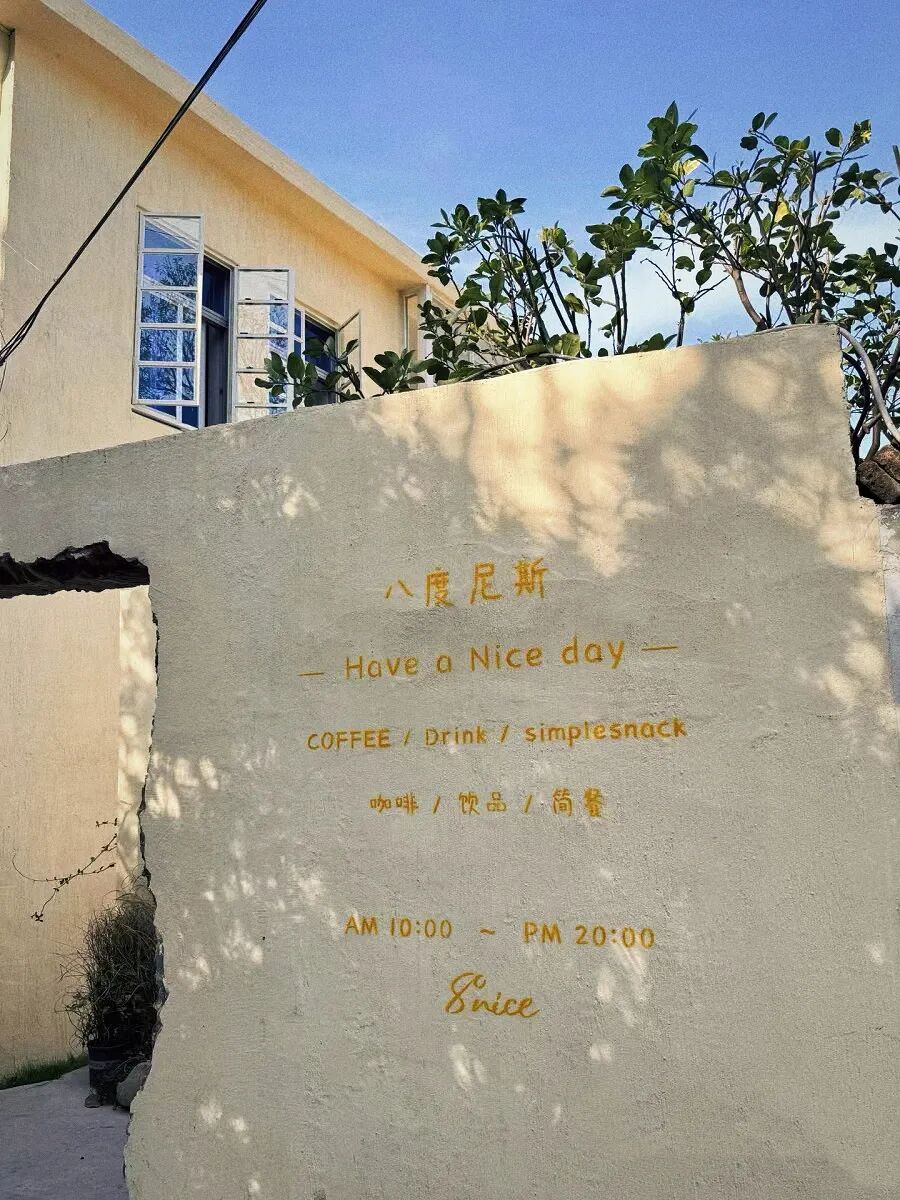 八度尼斯
— Have a Nice day —
COFFEE / Drink / simplesnack
咖啡 / 饮品 / 简餐
AM 10:00 ~ PM 20:00
8°nice